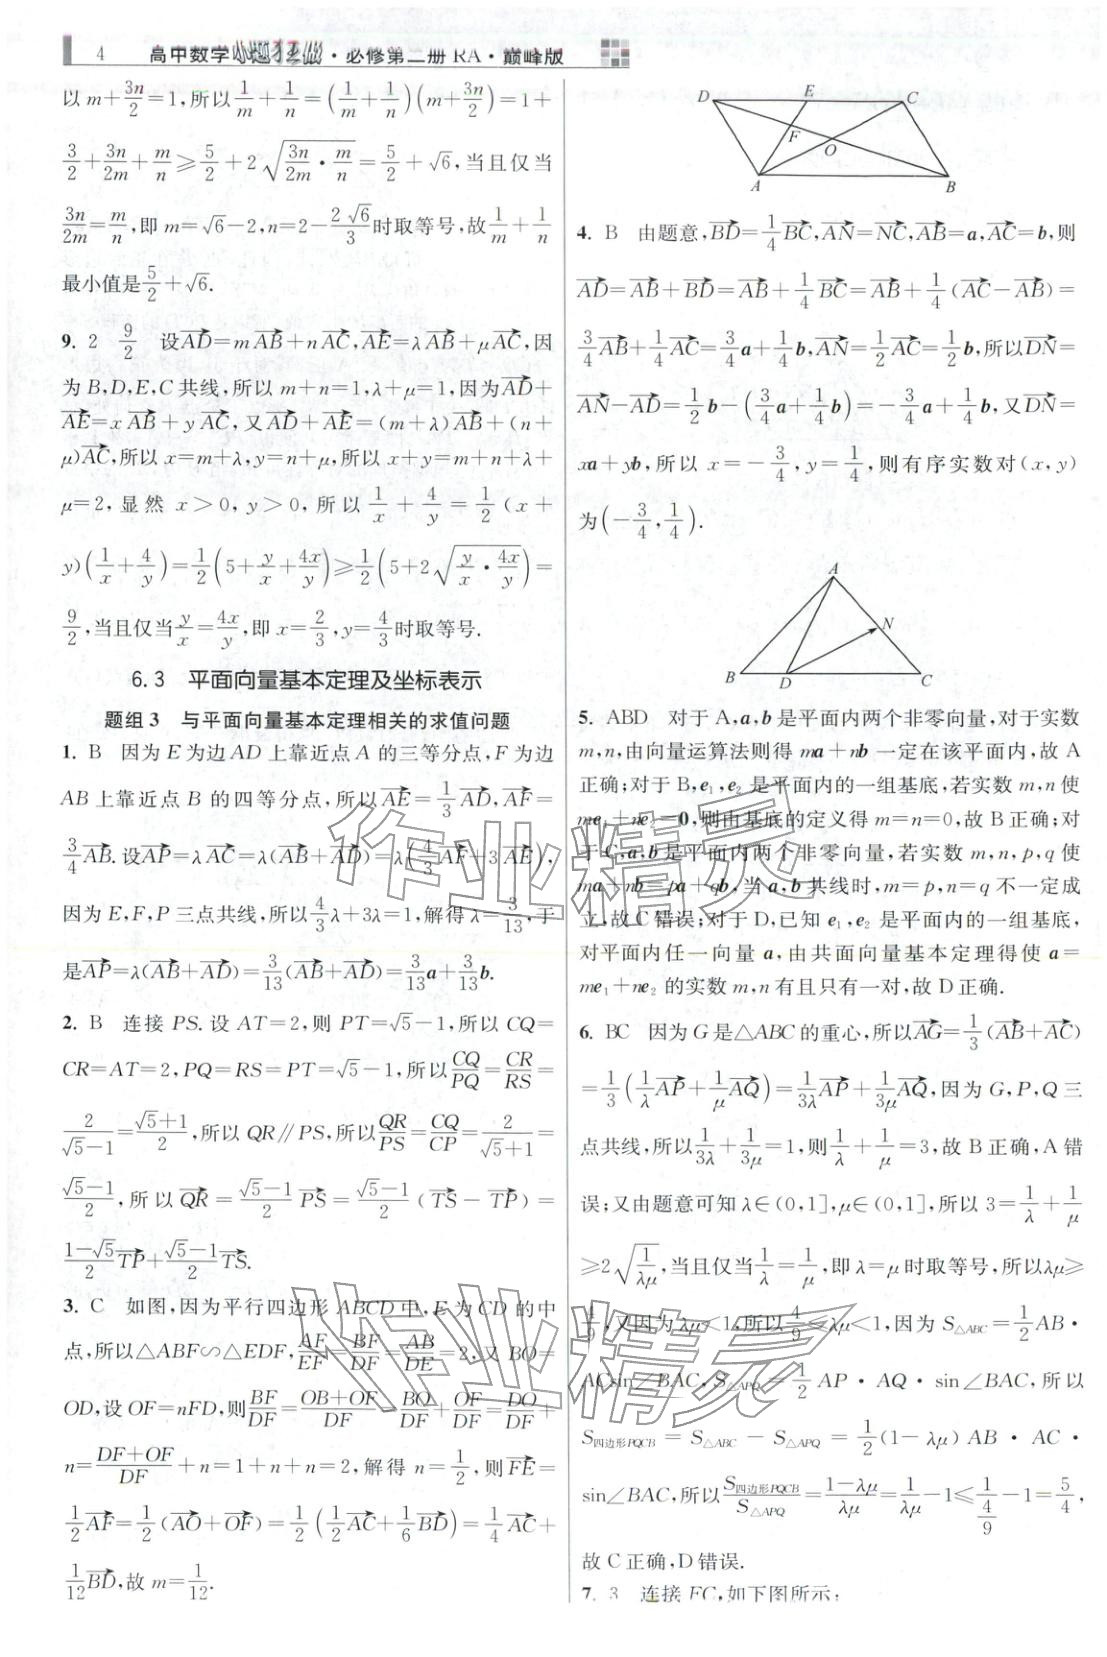 4 高中数学小题狂做·必修第二册 RA·巅峰版
以 m+3n/2=1,所以1/m+1/n=(1/m+1/n)(m+3n/2)=1+
3/2+3n/2m+m/n≥5/2+2√(3n/2m·m/n)=5/2+√6,当且仅当
3n/2m=m/n,即 m=√6-2,n=2-2√6/3时取等号,故1/m+1/n
最小值是5/2+√6.
9. 2 9/2 设AD→=mAB→+nAC→,AE→=λAB→+μAC→,因
为 B,D,E,C 共线,所以 m+n=1,λ+μ=1,因为AD→+
AE→=xAB→+yAC→,又AD→+AE→=(m+λ)AB→+(n+
μ)AC→,所以 x=m+λ,y=n+μ,所以 x+y=m+n+λ+
μ=2,显然 x>0,y>0,所以1/x+4/y=1/2(x+
y)(1/x+4/y)=1/2(5+y/x+4x/y)≥1/2(5+2√(y/x·4x/y))=
9/2,当且仅当y/x=4x/y,即 x=2/3,y=4/3时取等号.
6.3 平面向量基本定理及坐标表示
题组3 与平面向量基本定理相关的求值问题
1. B 因为 E 为边 AD 上靠近点 A 的三等分点,F 为边
AB 上靠近点 B 的四等分点,所以AE→=1/3AD→,AF→=
3/4AB→.设AP→=λAC→=λ(AB→+AD→)=λ(4/3AF→+3AE→),
因为 E,F,P 三点共线,所以4/3λ+3λ=1,解得 λ=3/13,于
是AP→=λ(AB→+AD→)=3/13(AB→+AD→)=3/13a+3/13b.
2. B 连接 PS.设 AT=2,则 PT=√5-1,所以 CQ=
CR=AT=2,PQ=RS=PT=√5-1,所以CQ/PQ=CR/RS=
2/(√5-1)=(√5+1)/2,所以 QR∥PS,所以QR/PS=CQ/CP=2/(√5+1)=
(√5-1)/2,所以QR→=(√5-1)/2PS→=(√5-1)/2(TS→-TP→)=
(1-√5)/2TP→+(√5-1)/2TS→.
3. C 如图,因为平行四边形 ABCD 中,E 为 CD 的中
点,所以△ABF∽△EDF,AF/EF=BF/DF=AB/DE=2,又 BO=
OD,设 OF=nFD,则BF/DF=(OB+OF)/DF=BO/DF+OF/DF=DO/DF+
n=(DF+OF)/DF+n=1+n+n=2,解得 n=1/2,则FE→=
1/2AF→=1/2(AO→+OF→)=1/2(1/2AC→+1/6BD→)=1/4AC→+
1/12BD→,故 m=1/12.
D E C
F O
A B
4. B 由题意,BD→=1/4BC→,AN→=NC→,AB→=a,AC→=b,则
AD→=AB→+BD→=AB→+1/4BC→=AB→+1/4(AC→-AB→)=
3/4AB→+1/4AC→=3/4a+1/4b,AN→=1/2AC→=1/2b,所以DN→=
AN→-AD→=1/2b-(3/4a+1/4b)=-3/4a+1/4b,又DN→=
xa+yb,所以 x=-3/4,y=1/4,则有序实数对(x,y)
为(-3/4,1/4).
A
N
B D C
5. ABD 对于 A,a,b 是平面内两个非零向量,对于实数
m,n,由向量运算法则得 ma+nb 一定在该平面内,故 A
正确;对于 B,e₁,e₂ 是平面内的一组基底,若实数 m,n 使
me₁+ne₂=0,则由基底的定义得 m=n=0,故 B 正确;对
于 C,a,b 是平面内两个非零向量,若实数 m,n,p,q 使
ma+nb=pa+qb,当 a,b 共线时,m=p,n=q 不一定成
立,故 C 错误;对于 D,已知 e₁,e₂ 是平面内的一组基底,
对平面内任一向量 a,由共面向量基本定理得使 a=
me₁+ne₂ 的实数 m,n 有且只有一对,故 D 正确.
6. BC 因为 G 是△ABC 的重心,所以AG→=1/3(AB→+AC→)
=1/3(1/λAP→+1/μAQ→)=1/3λAP→+1/3μAQ→,因为 G,P,Q 三
点共线,所以1/3λ+1/3μ=1,则1/λ+1/μ=3,故 B 正确,A 错
误;又由题意可知 λ∈(0,1],μ∈(0,1],所以 3=1/λ+1/μ
≥2√(1/λμ),当且仅当1/λ=1/μ,即 λ=μ 时取等号,所以λμ≥
4/9,又因为 λμ<1,所以4/9≤λμ<1,因为 S△ABC=1/2AB·
ACsin∠BAC,S△APQ=1/2AP·AQ·sin∠BAC,所以
S四边形PQCB=S△ABC-S△APQ=1/2(1-λμ)AB·AC·
sin∠BAC,所以S四边形PQCB/S△APQ=(1-λμ)/λμ=1/λμ-1≤1/(4/9)-1=5/4,
故 C 正确,D 错误.
7. 3 连接 FC,如下图所示:
作业精灵
作业精灵